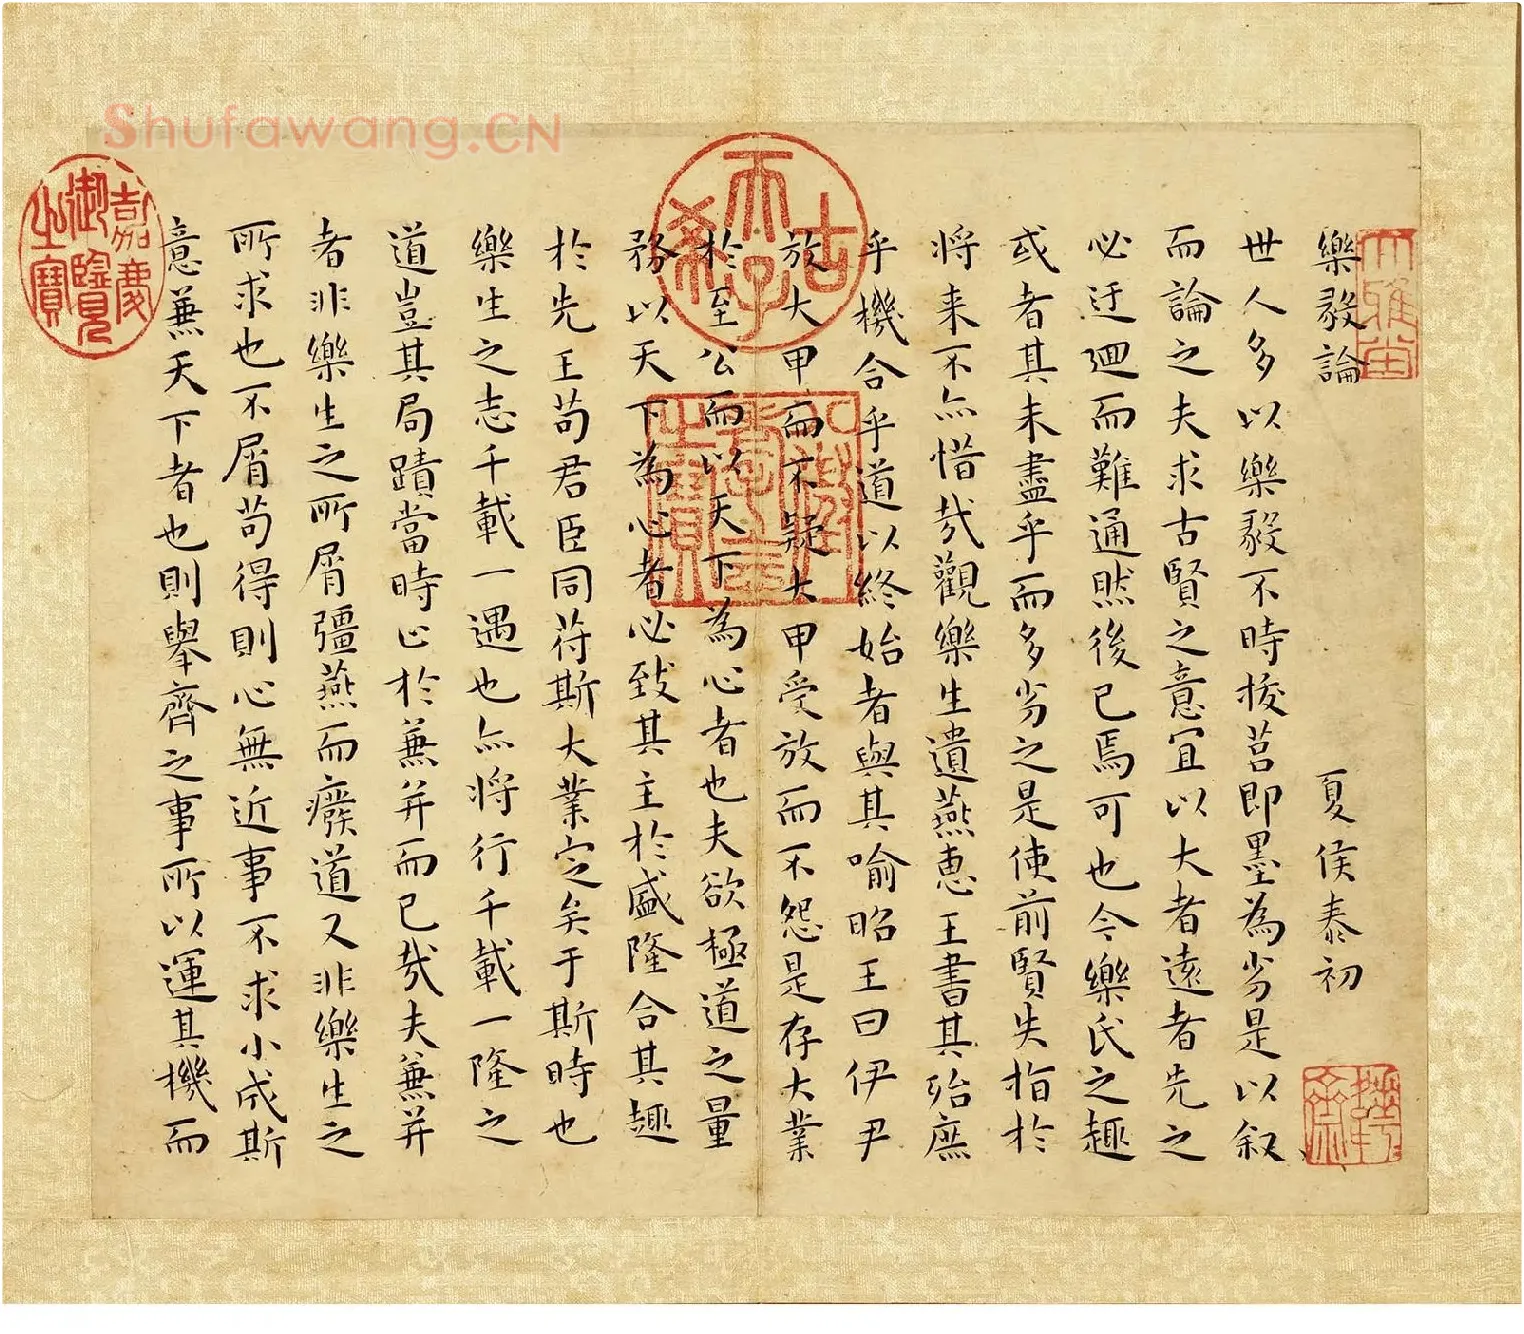 Shufawang.CN
大雅堂
樂毅論 夏侯泰初
世人多以樂毅不時拔莒即墨為劣是以叙
而論之夫求古賢之意宜以大者遠者先之
必迂迴而難通然後已焉可也令樂氏之趣
或者其未盡乎而多劣之是使前賢失指於
将来不亦惜哉觀樂生遺燕惠王書其殆庶
乎機合乎道以終始者與其喻昭王曰伊尹
放大甲而不疑大甲受放而不怨是存大業
於至公而以天下為心者也夫欲極道之量
務以天下為心者必致其主於盛隆合其趣
於先王苟君臣同苻斯大業定矣于斯時也
樂生之志千載一遇也亦将行千載一隆之
道豈其局蹟當時止於兼并而已哉夫兼并
者非樂生之所屑彊燕而癈道又非樂生之
所求也不屑苟得則心無近事不求小成斯
意兼天下者也則舉齊之事所以運其機而
古希天子
嘉慶御覽之寶